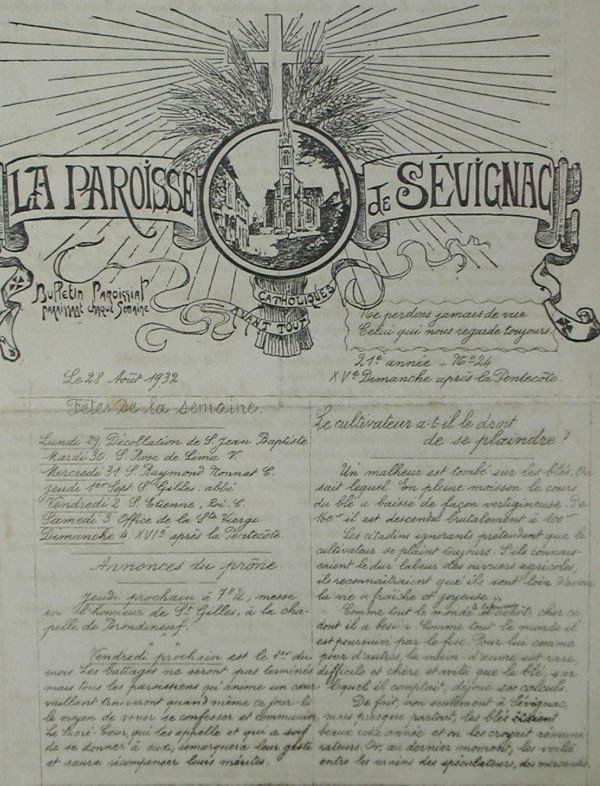 LA PAROISSE de SÉVIGNAC
Bulletin Paroissial
paraissant chaque Semaine
CATHOLIQUES
AVANT TOUT
Ne perdons jamais de vue
Celui qui nous regarde toujours.
21e année - No 24
XVe Dimanche après la Pentecôte.
Le 28 Août 1932
Fêtes de la semaine.
Lundi 29. Décollation de S. Jean Baptiste
Mardi 30. S. Rose de Lima V.
Mercredi 31 S. Raymond Nonnat C.
Jeudi 1er Sept. S. Gilles. abbé
Vendredi 2 S. Etienne, Roi. C.
Samedi 3 Office de la Ste Vierge.
Dimanche 4. XVIe après la Pentecôte.
Annonces du prône.
Jeudi prochain à 7h, messe
en l'honneur de St Gilles, à la cha-
pelle de Brondineuf.
Vendredi prochain est le 1er du
mois. Les battages ne seront pas terminés
mais tous les paroissiens qu'anime un cœur
vaillant trouveront quand même ce jour-là
le moyen de venir se confesser et communier
Le Sacré-Cœur, qui les appelle et qui a soif
de se donner à eux, remarquera leur geste
et saura récompenser leurs mérites.
Le cultivateur a-t-il le droit
de se plaindre ?
Un malheur est tombé sur les blés. On
sait lequel. En pleine moisson le cours
du blé a baissé de façon vertigineuse. De
160 il est descendu brutalement à 100
Les citadins ignorants prétendent que le
cultivateur se plaint toujours. S'ils connais-
saient le dur labeur des ouvriers agricoles,
ils reconnaîtraient que ils sont loin d'avoir
la vie « fraîche et joyeuse »
Comme tout le monde achète cher ce
dont il a besoin. Comme tout le monde il
est poursuivi par le fisc. Pour lui comme
pour d'autres, la main-d'œuvre est rare,
difficile et chère et voilà que le blé, sur
lequel il comptait, déjoue ses calculs.
De fait, non seulement à Sévignac,
mais presque partout, les blés étaient
beaux cette année et on les croyait rémuné-
rateurs. Or, au dernier moment, les voilà
entre les mains des spéculateurs, des mercantis